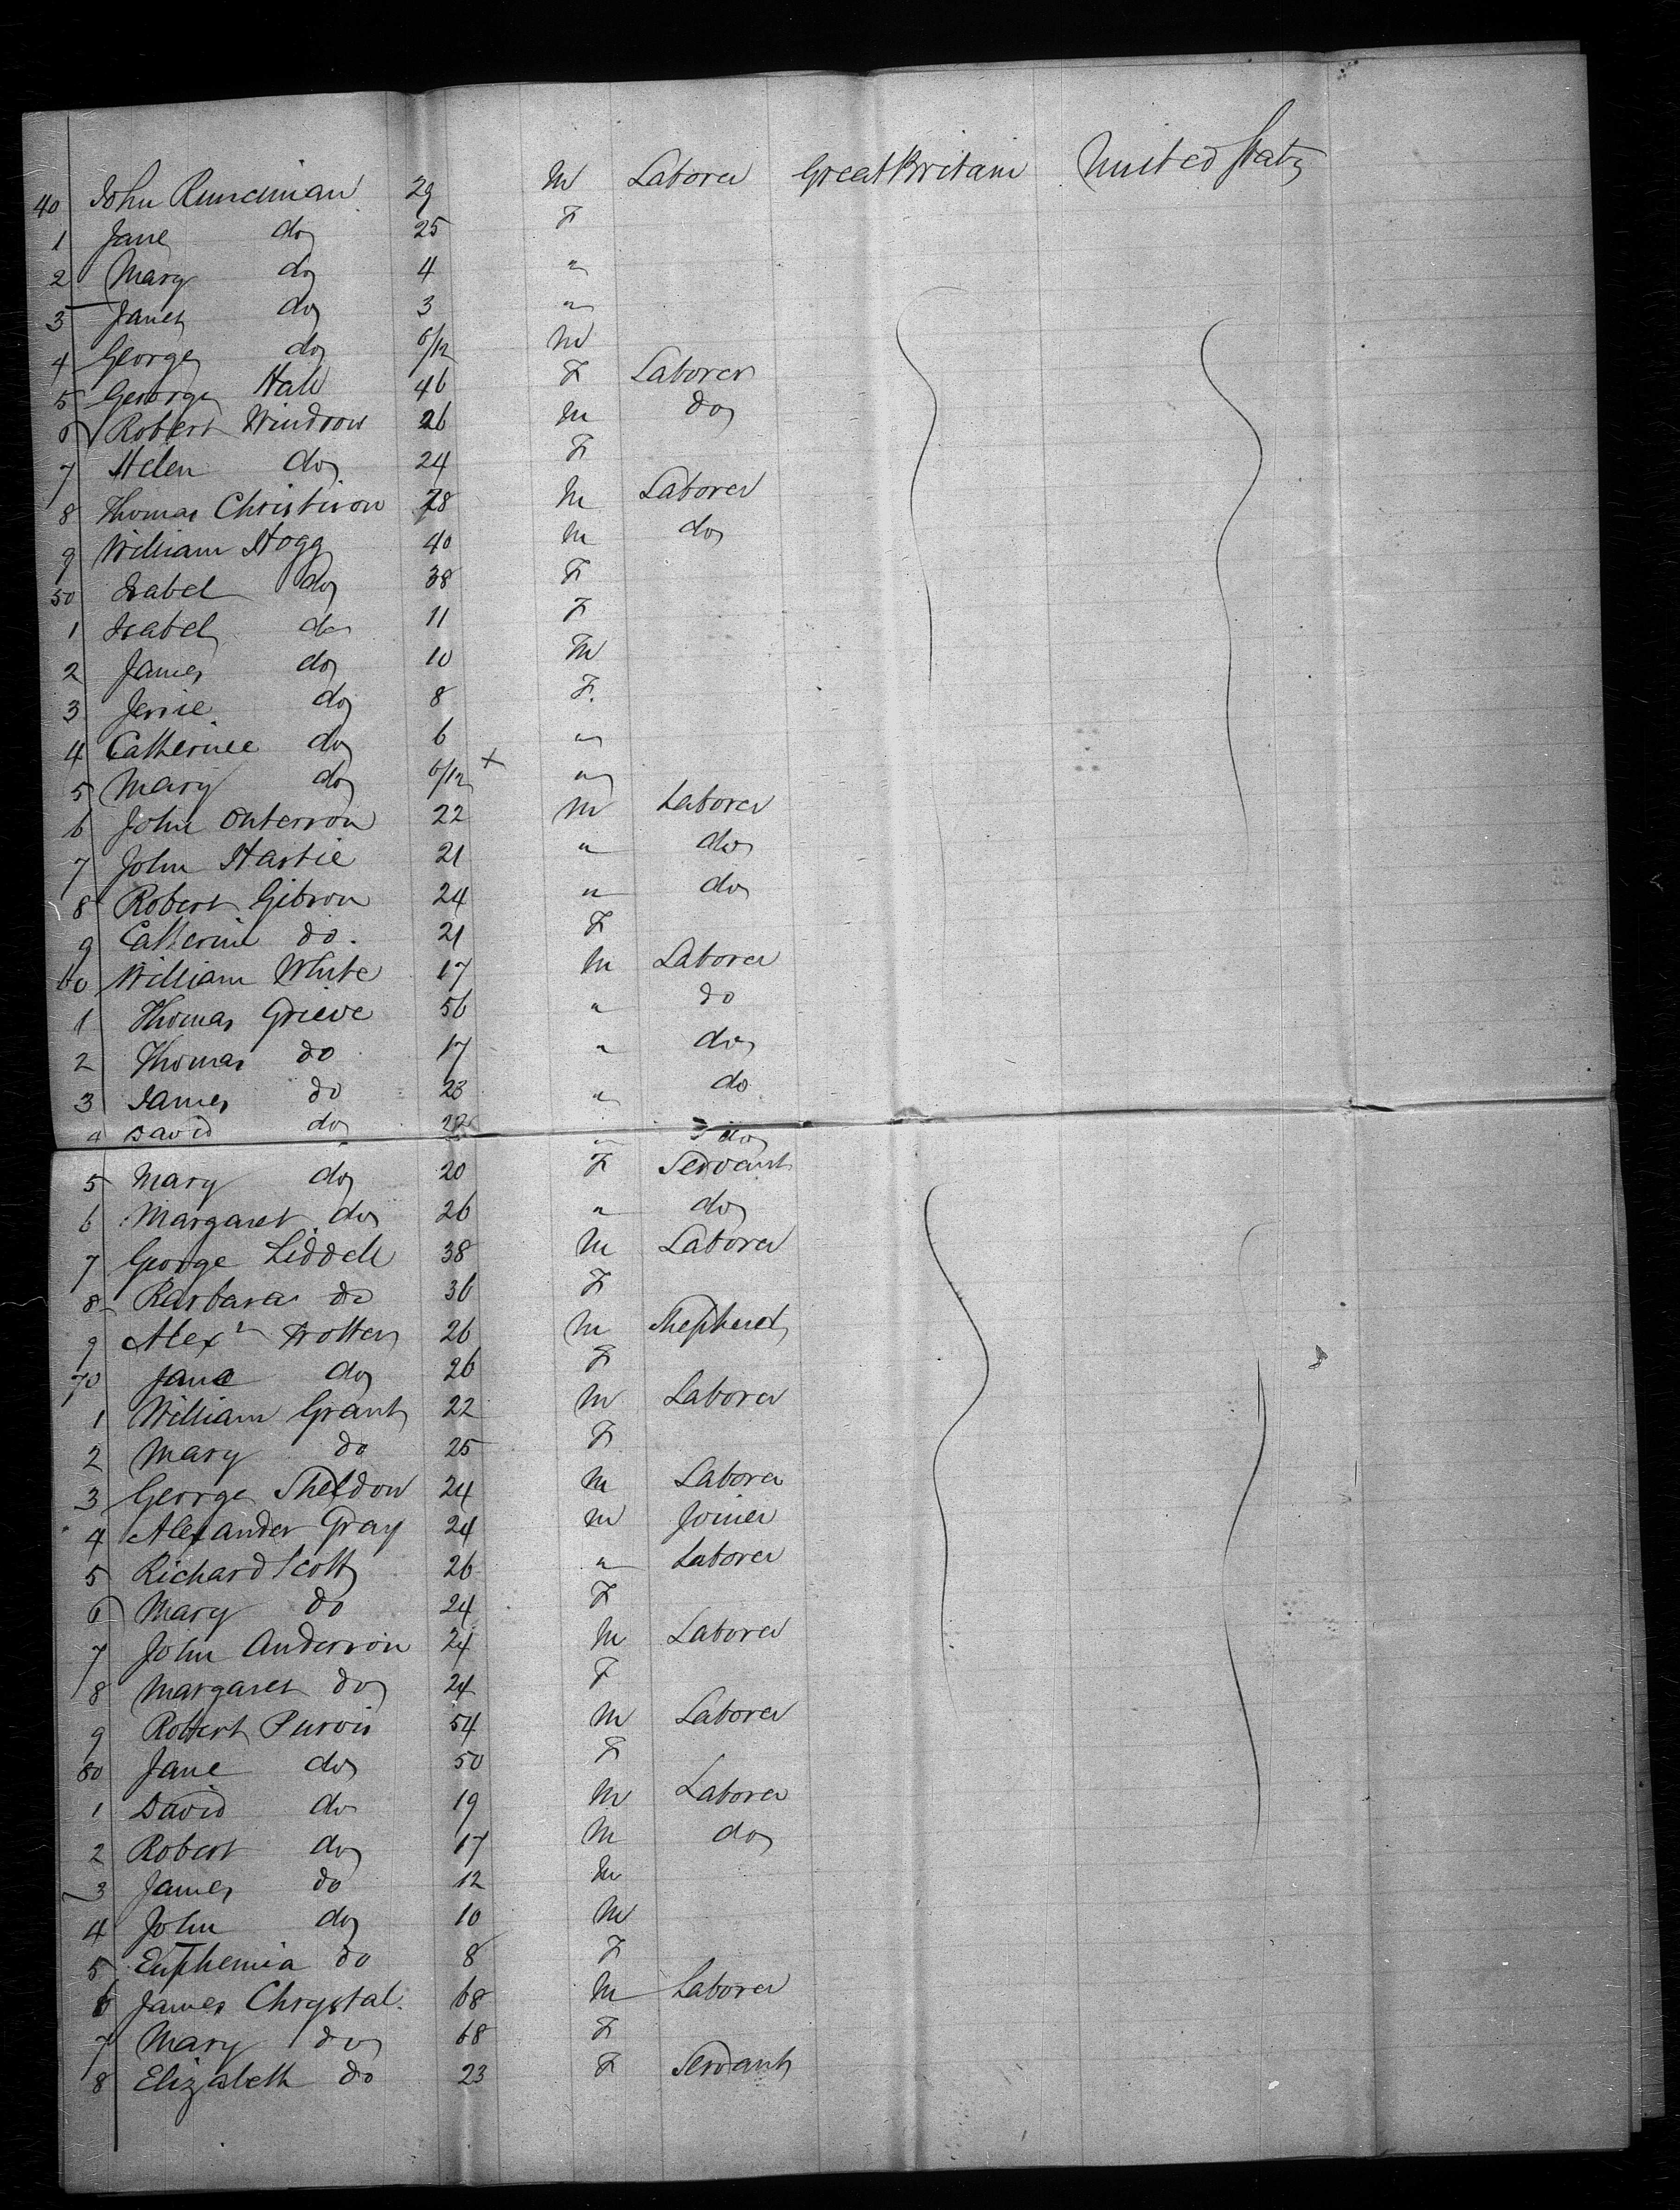 40 John Runciman 29 M Laborer Great Britain United States
1 Jane do 25 F
2 Mary do 4 "
3 Janet do 3 "
4 George do 6/12 M
5 George Hall 46 F Laborer
6 Robert Windrow 26 M do
7 Helen do 24 F
8 Thomas Christison 28 M Laborer
9 William Hogg 40 M do
50 Isabel do 38 F
1 Isabel do 11 F
2 James do 10 M
3 Jessie do 8 F.
4 Catherine do 6 "
5 Mary do 6/12 x "
6 John Outerson 22 M Laborer
7 John Hastie 21 " do
8 Robert Gibson 24 " do
9 Catherine do. 21 F
60 William White 17 M Laborer
1 Thomas Grieve 56 " do
2 Thomas do 17 " do
3 James do 23 " do
4 David do 22 " do
5 Mary do 20 F Servant
6 Margaret do 26 " do
7 George Liddell 38 M Laborer
8 Barbara do 36 F
9 Alexr Trotter 26 M Shepherd
70 Jane do 26 F
1 William Grant 22 M Laborer
2 Mary do 25 F
3 George Sheldon 24 M Laborer
4 Alexander Gray 24 M Joiner
5 Richard Scott 26 " Laborer
6 Mary do 24 F
7 John Anderson 24 M Laborer
8 Margaret do 24 F
9 Robert Purvis 54 M Laborer
80 Jane do 50 F
1 David do 19 M Laborer
2 Robert do 17 M do
3 James do 12 M
4 John do 10 M
5 Euphemia do 8 F
6 James Chrystal. 68 M Laborer
7 Mary do 68 F
8 Elizabeth do 23 F Servant